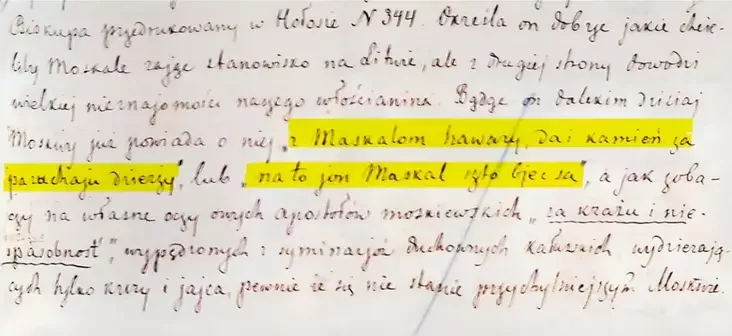 Biskupa przedrukowany w Hołosie N 344. Określa on dobrze jakie chcie-
liby Moskale zająć stanowisko na Litwie, ale z drugiej strony dowodzi
wielkiej nieznajomości naszego włościanina. Będąc on dalekim dzisiaj
Moskwy już powiada o niej „z Maskalom hawary, dai kamień za
pazachaju dzierży", lub „na to jon Maskal szto bjec sa", a jak zoba-
czy na własne oczy owych apostołów moskiewskich „za krażu i nie-
spasobność", wypędzonych z syminacjów duchownych kałuskich, wydzierają-
cych tylko kury i jajca, pewnie że się nie stanie przychylniejszym Moskwie.